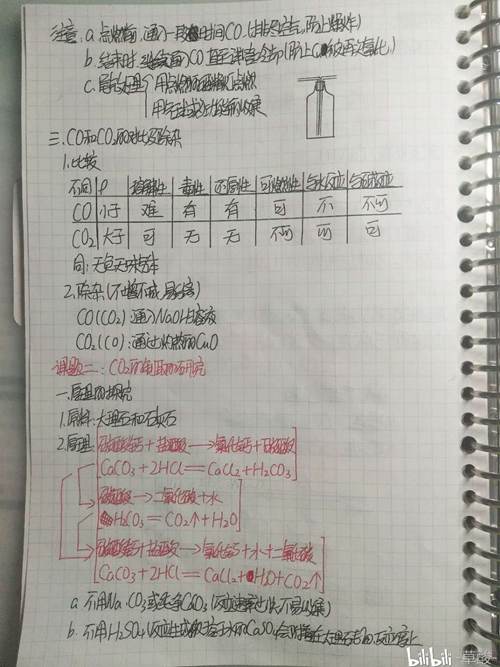 注意: a. 点燃前,通入一段时间CO (排尽空气,防止爆炸)
b. 结束时 继续通CO直至冷却(防止Cu被再次氧化)
c. 尾气处理 用点燃的酒精灯点燃
用气球或
三. CO和CO₂的对比及除杂
1. 比较
不同 ρ 溶解性 毒性 还原性 可燃性 与水反应 与碱反应
CO 小于 难 有 有 可 不 不可
CO₂ 大于 可 无 无 不可 可 可
同: 无色无味气体
2. 除杂(不增不减易分)
CO(CO₂): 通入NaOH溶液
CO₂(CO): 通过灼热的CuO
课题二: CO₂实验室制取的研究
一. 原理的探究
1. 原料: 大理石和石灰石
2. 原理: 碳酸钙+盐酸→氯化钙+碳酸
CaCO₃+2HCl=CaCl₂+H₂CO₃
碳酸→二氧化碳+水
H₂CO₃=CO₂↑+H₂O
碳酸钙+盐酸→氯化钙+水+二氧化碳
CaCO₃+2HCl=CaCl₂+H₂O+CO₂↑
a. 不用Na₂CO₃或纯净CaCO₃ (反应速率过快,不易收集)
b. 不用H₂SO₄ (反应生成的微溶于水的CaSO₄会附着在大理石表面,反应停止
bilibili